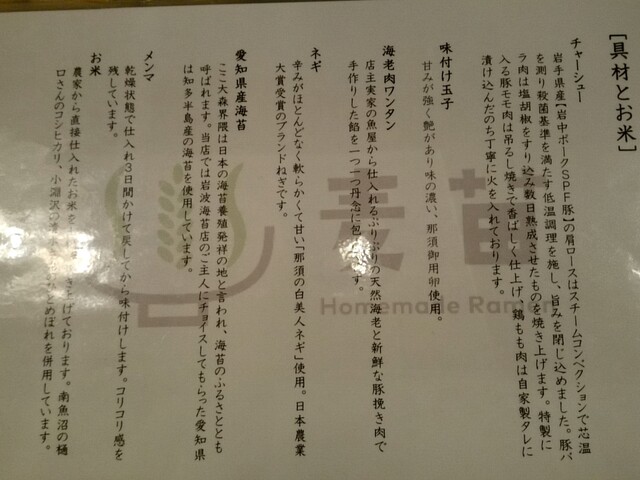 [具材とお米]
チャーシュー
岩手県産【岩中ポークSPF豚】の肩ロースはスチームコンベクションで芯温
を測り殺菌基準を満たす低温調理を施し、旨みを閉じ込めました。豚バ
ラ肉は塩胡椒をすり込み数日熟成させたものを焼き上げます。特製に
入る豚モモ肉は吊るし焼きで香ばしく仕上げ、鶏もも肉は自家製タレに
漬け込んだのち丁寧に火を入れております。
味付け玉子
甘みが強く艶があり味の濃い、那須御用卵使用。
海老肉ワンタン
店主実家の魚屋から仕入れるぷりぷりの天然海老と新鮮な豚挽き肉で
手作りした餡を一つ一つ丹念に包 す。
ネギ
辛みがほとんどなく軟らかくて甘い「那須の白美人ネギ」使用。日本農業
大賞受賞のブランドねぎです。
愛知県産海苔
ここ大森界隈は日本の海苔養殖発祥の地と言われ、海苔のふるさととも
呼ばれます。当店では岩波海苔店のご主人にチョイスしてもらった愛知県
は知多半島産の海苔を使用しています。
メンマ
乾燥状態で仕入れ3日間かけて戻してから味付けします。コリコリ感を
残しています。
お米
農家から直接仕入れたお米を き上げております。南魚沼の樋
口さんのコシヒカリ、小淵沢の とめぼれを併用しています。
麦苗
Homemade Ramen